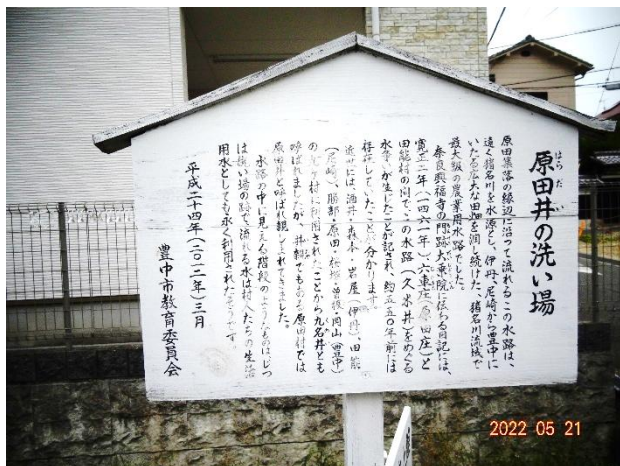 原田井の洗い場
はらだい
原田集落の縁辺に沿って流れるこの水路は、
遠く猪名川を水源とし、伊丹、尼崎から豊中に
いたる広大な田畑を潤し続けた、猪名川流域で
最大級の農業用水路でした。
奈良興福寺の門跡大乗院に伝わる日記には、
寛正二年(一四六一年)、六車庄(原田庄)と
田能村の間で、この水路(久米井)をめぐる
水争いが生じたことが記され、約五五〇年前には
存在していたことが分かります。
近世には、酒井・森本・岩屋(伊丹)、田能
(尼崎)、勝部・原田・桜塚・曽根・岡山(豊中)
の九ヶ村に利用されたことから九名井とも
呼ばれましたが、井親でもある原田村では
原田井と呼ばれ親しまれてきました。
水路の中に見える階段のようなものはじつ
は洗い場の跡で、流れる水は村人たちの生活
用水としても永く利用されたそうです。
平成二十四年(二〇一二年)三月
豊中市教育委員会
2022 05 21